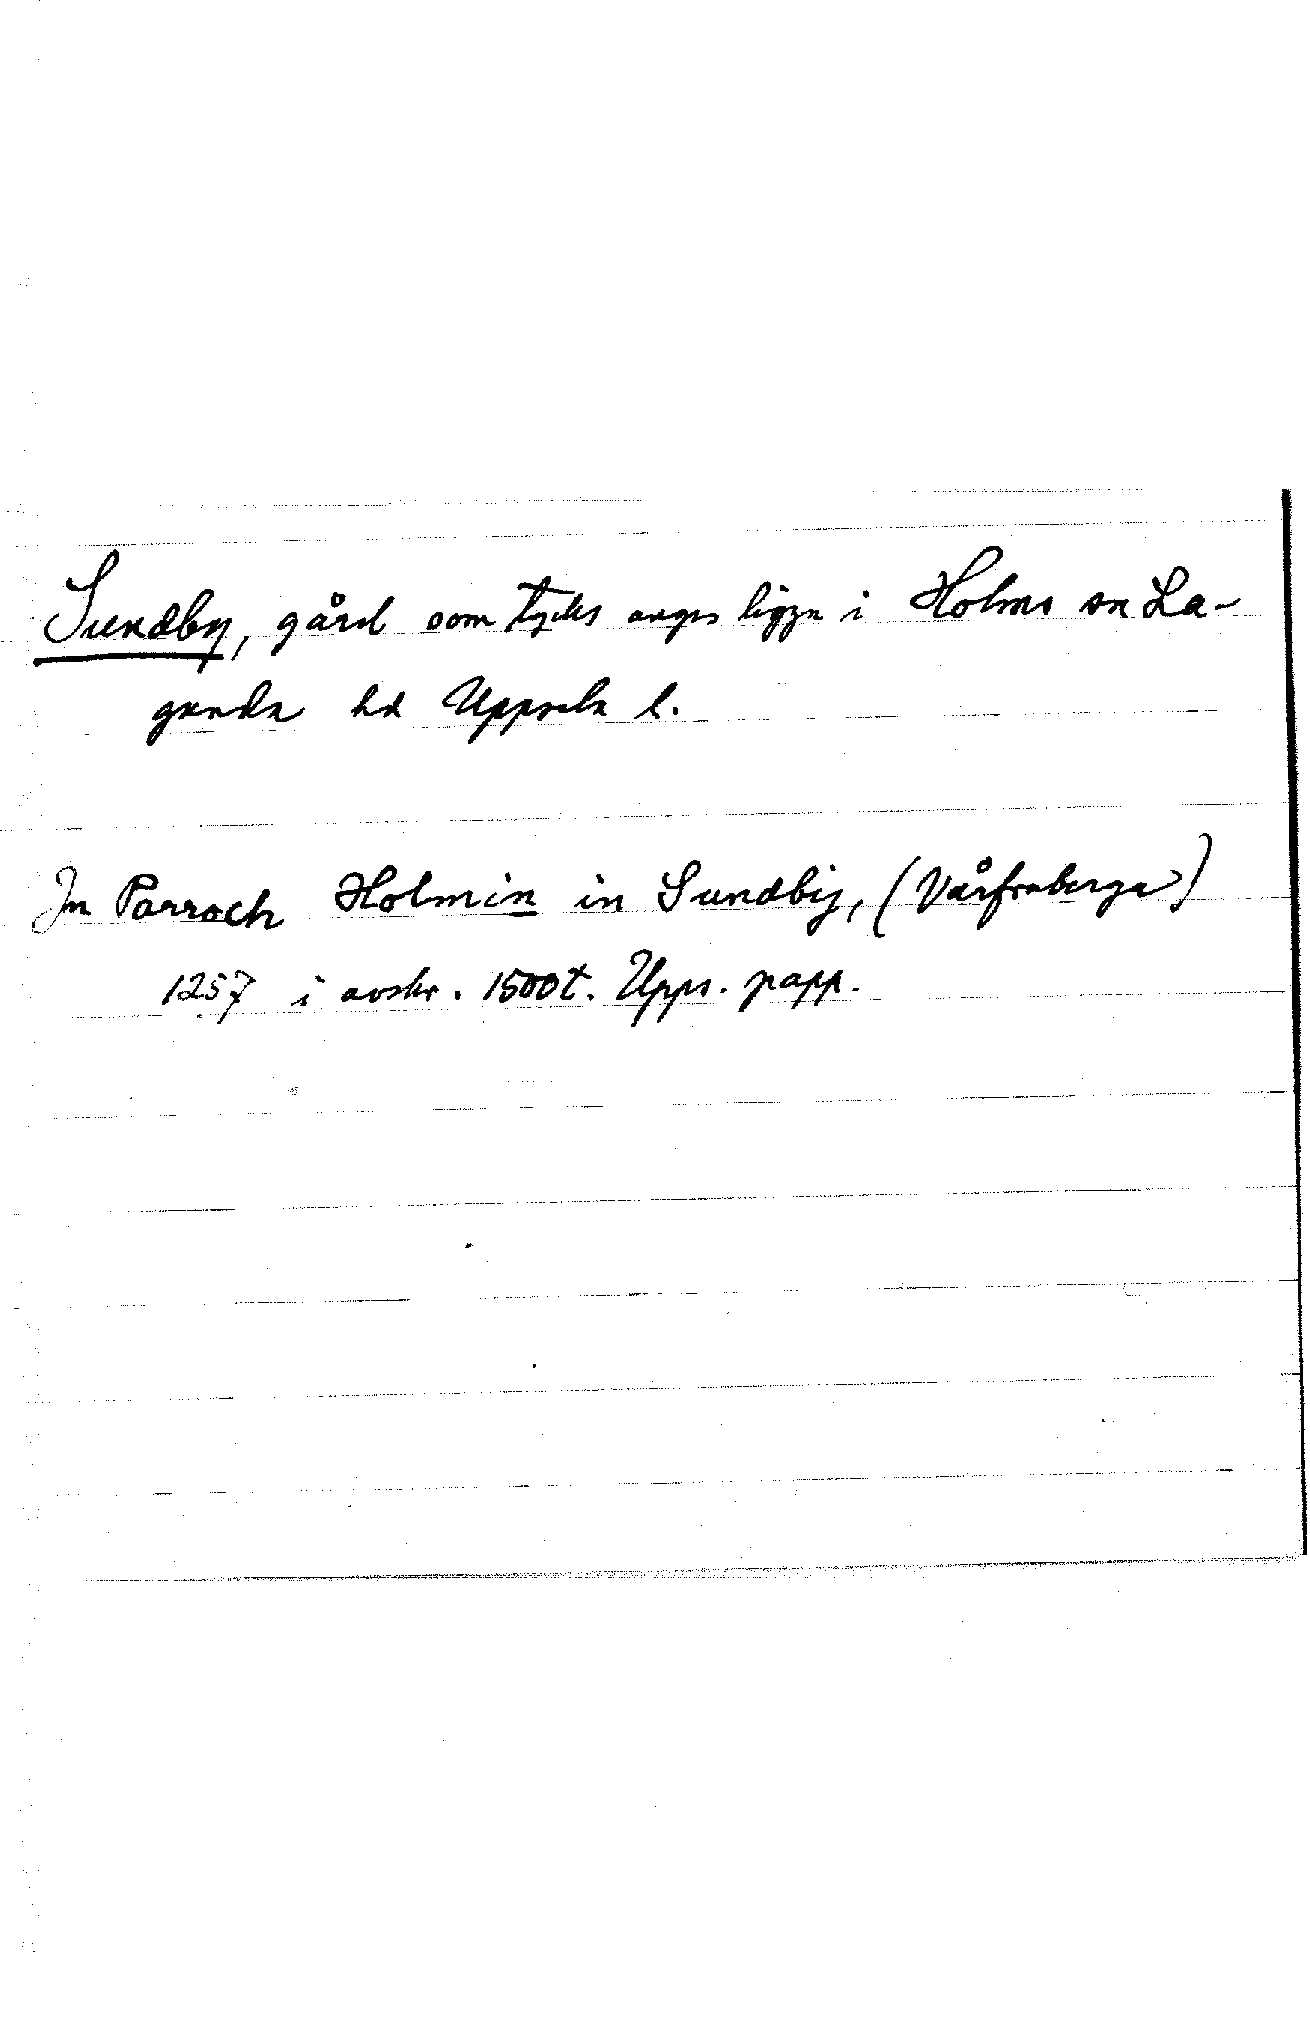 Sundby, gård som tycks anges ligga i Holms sn La-
gunda hd Uppsala l.
In Parroch Holmin in Sundbij, (Vårfruberga)
1257 i avskr. 1500t. Upps. papp.